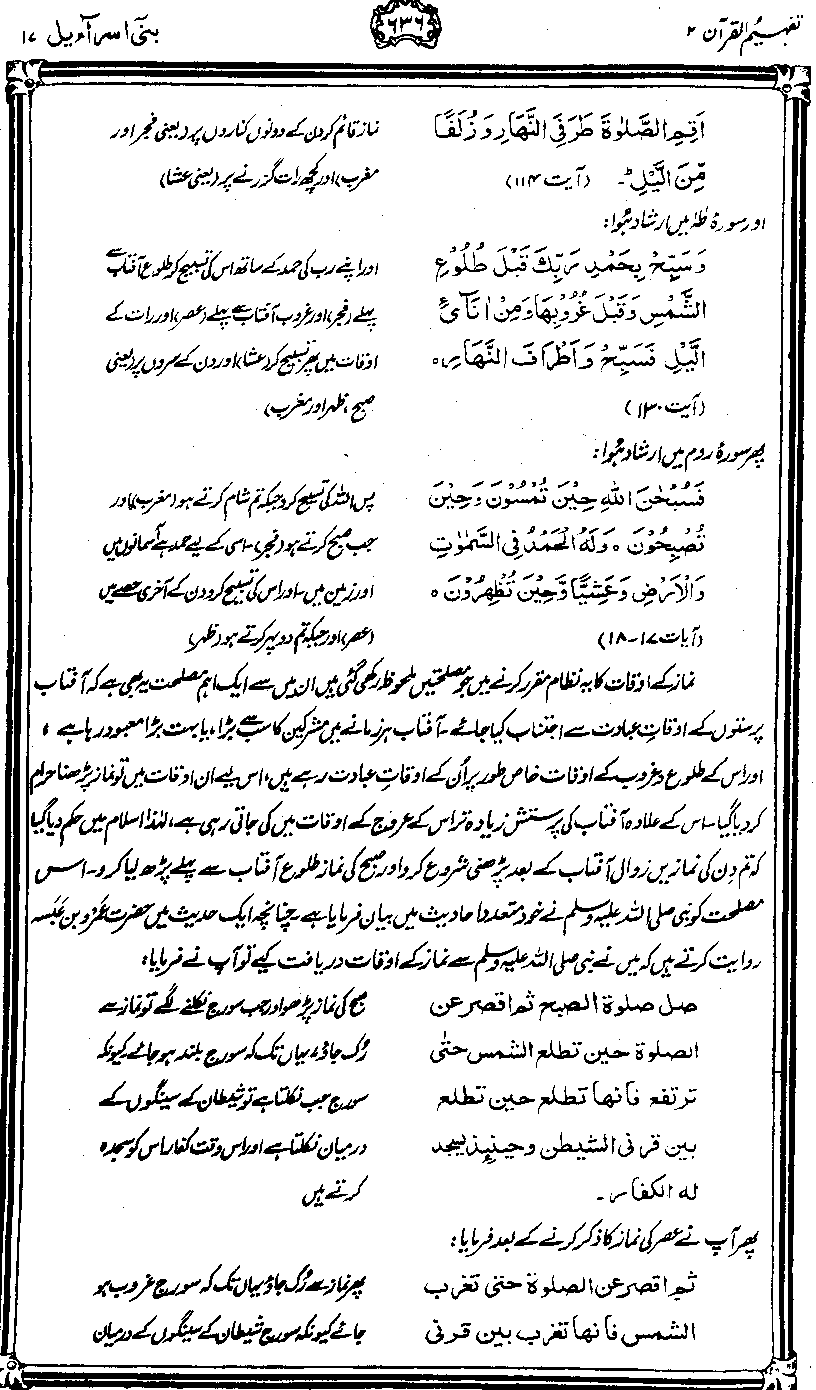 تفہیم القرآن ۲ ۶۳۶ بنی اسرآءیل ۱۷
اَقِمِ الصَّلٰوةَ طَرَفَیِ النَّهَارِ وَ زُلَفًا نماز قائم کر دن کے دونوں کناروں پر (یعنی فجر اور
مِّنَ الَّیْلِ ؕ۔ (آیت ۱۱۴) مغرب) اور کچھ رات گزرنے پر (یعنی عشا)
اور سورۂ طٰہٰ میں ارشاد ہُوا:
وَ سَبِّحْ بِحَمْدِ رَبِّكَ قَبْلَ طُلُوْعِ اور اپنے رب کی حمد کے ساتھ اس کی تسبیح کر طلوع آفتاب سے
الشَّمْسِ وَ قَبْلَ غُرُوْبِهَا وَ مِنْ اٰنَآئِ پہلے (فجر) اور غروب آفتاب سے پہلے (عصر) اور رات کے
الَّیْلِ فَسَبِّحْ وَ اَطْرَافَ النَّهَارِ ہ اوقات میں پھر تسبیح کر (عشا) اور دن کے سروں پر (یعنی
(آیت ۱۳۰) صبح، ظہر اور مغرب)
پھر سورۂ روم میں ارشاد ہُوا:
فَسُبْحٰنَ اللّٰهِ حِیْنَ تُمْسُوْنَ وَ حِیْنَ پس اللہ کی تسبیح کرو جبکہ تم شام کرتے ہو (مغرب) اور
تُصْبِحُوْنَ ہ وَ لَهُ الْحَمْدُ فِی السَّمٰوٰتِ جب صبح کرتے ہو (فجر)۔ اسی کے لیے حمد ہے آسمانوں میں
وَ الْاَرْضِ وَ عَشِیًّا وَّ حِیْنَ تُظْهِرُوْنَ ہ اور زمین میں۔ اور اس کی تسبیح کرو دن کے آخری حصے میں
(آیات ۱۷-۱۸) (عصر) اور جبکہ تم دوپہر کرتے ہو (ظہر)
نماز کے اوقات کا یہ نظام مقرر کرنے میں جو مصلحتیں ملحوظ رکھی گئی ہیں ان میں سے ایک اہم مصلحت یہ بھی ہے کہ آفتاب
پرستوں کے اوقاتِ عبادت سے اجتناب کیا جائے۔ آفتاب ہر زمانے میں مشرکین کا سب سے بڑا، یا بہت بڑا معبود رہا ہے،
اور اس کے طلوع و غروب کے اوقات خاص طور پر اُن کے اوقاتِ عبادت رہے ہیں، اس لیے ان اوقات میں تو نماز پڑھنا حرام
کر دیا گیا۔ اس کے علاوہ آفتاب کی پرستش زیادہ تر اس کے عروج کے اوقات میں کی جاتی رہی ہے، لہٰذا اسلام میں حکم دیا گیا
کہ تم دن کی نمازیں زوال آفتاب کے بعد پڑھنی شروع کرو اور صبح کی نماز طلوع آفتاب سے پہلے پڑھ لیا کرو۔ اس
مصلحت کو نبی صلی اللہ علیہ وسلم نے خود متعدد احادیث میں بیان فرمایا ہے۔ چنانچہ ایک حدیث میں حضرت عَمْرو بن عَبَسہ
روایت کرتے ہیں کہ میں نے نبی صلی اللہ علیہ وسلم سے نماز کے اوقات دریافت کیے تو آپ نے فرمایا:
صل صلوة الصبح ثم اقصر عن صبح کی نماز پڑھو اور جب سورج نکلنے لگے تو نماز سے
الصلوة حین تطلع الشمس حتی رُک جاؤ، یہاں تک کہ سورج بلند ہو جائے کیونکہ
ترتفع فانها تطلع حین تطلع سورج جب نکلتا ہے تو شیطان کے سینگوں کے
بین قرنی الشیطن وحینئذ یسجد درمیان نکلتا ہے اور اس وقت کفار اس کو سجدہ
له الکفار۔ کرتے ہیں
پھر آپ نے عصر کی نماز کا ذکر کرنے کے بعد فرمایا:
ثم اقصر عن الصلوة حتی تغرب پھر نماز سے رُک جاؤ یہاں تک کہ سورج غروب ہو
الشمس فانها تغرب بین قرنی جائے کیونکہ سورج شیطان کے سینگوں کے درمیان